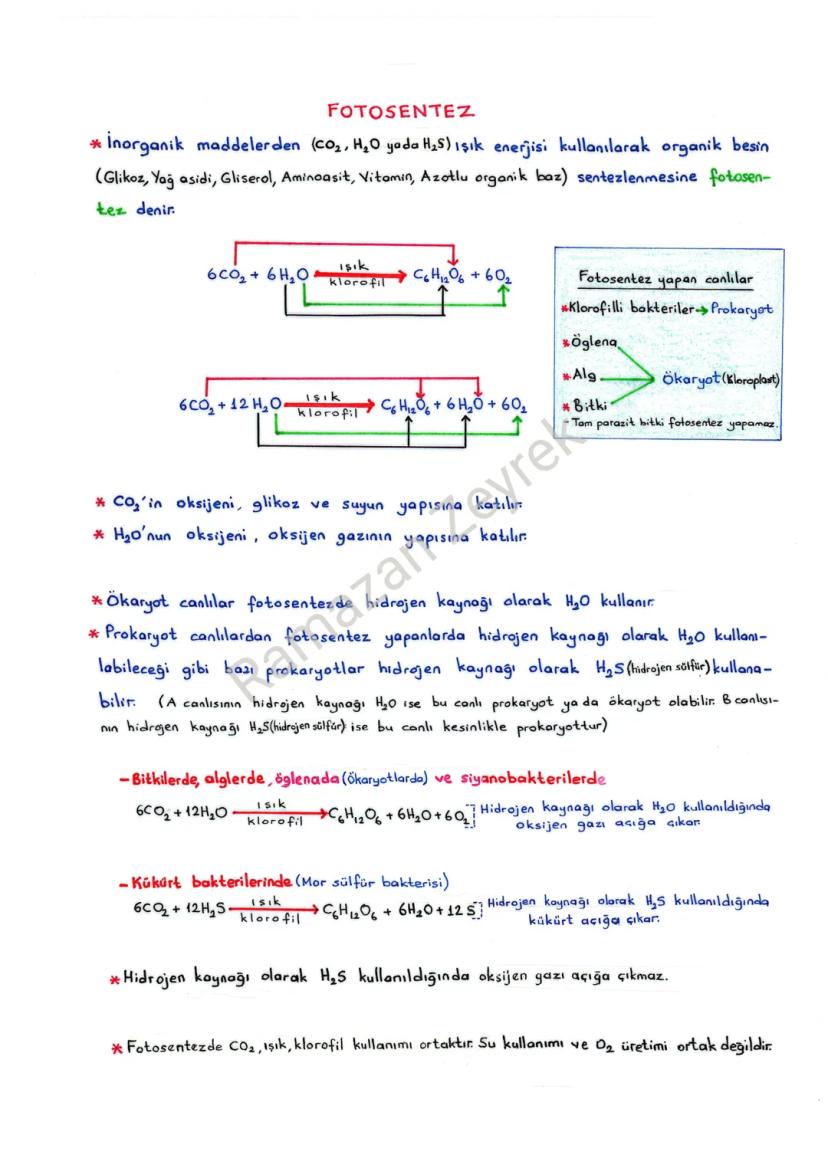 FOTOSENTEZ
* İnorganik maddelerden (CO₂, H₂O yada H₂S) ışık enerjisi kullanılarak organik besin
(Glikoz, Yağ asidi, Gliserol, Aminoasit, Vitamin, Azotlu organik baz) sentezlenmesine fotosen-
tez denir.
6CO₂ + 6H₂O ışık klorofil C₆H₁₂O₆ + 6O₂
6CO₂ + 12H₂O ışık klorofil C₆H₁₂O₆ + 6H₂O + 6O₂
Fotosentez yapan canlılar
* Klorofilli bakteriler → Prokaryot
* Öglena
* Alg → Ökaryot (Kloroplast)
* Bitki
- Tam parazit bitki fotosentez yapamaz.
* CO₂'in oksijeni, glikoz ve suyun yapısına katılır.
* H₂O'nun oksijeni, oksijen gazının yapısına katılır.
* Ökaryot canlılar fotosentezde hidrojen kaynağı olarak H₂O kullanır.
* Prokaryot canlılardan fotosentez yapanlarda hidrojen kaynağı olarak H₂O kullanı-
labileceği gibi bazı prokaryotlar hidrojen kaynağı olarak H₂S (hidrojen sülfür) kullana-
bilir. (A canlısının hidrojen kaynağı H₂O ise bu canlı prokaryot ya da ökaryot olabilir. B canlısı-
nın hidrojen kaynağı H₂S (hidrojen sülfür) ise bu canlı kesinlikle prokaryottur)
- Bitkilerde, alglerde, öglenada (Ökaryotlarda) ve siyanobakterilerde
6CO₂ + 12H₂O ışık klorofil → C₆H₁₂O₆ + 6H₂O + 6O₂ Hidrojen kaynağı olarak H₂O kullanıldığında
oksijen gazı açığa çıkar.
- Kükürt bakterilerinde (Mor sülfür bakterisi)
6CO₂ + 12H₂S ışık klorofil → C₆H₁₂O₆ + 6H₂O + 12S Hidrojen kaynağı olarak H₂S kullanıldığında
kükürt açığa çıkar.
* Hidrojen kaynağı olarak H₂S kullanıldığında oksijen gazı açığa çıkmaz.
* Fotosentezde CO₂, ışık, klorofil kullanımı ortaktır. Su kullanımı ve O₂ üretimi ortak değildir.
Ramazan Zeyrek